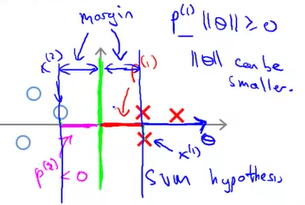 margin
p^(1) ||θ|| ≥ 0
||θ|| can be
smaller.
x^(2)
p^(1)
θ
x^(1)
p^(2)
< 0
SVM hypothesis